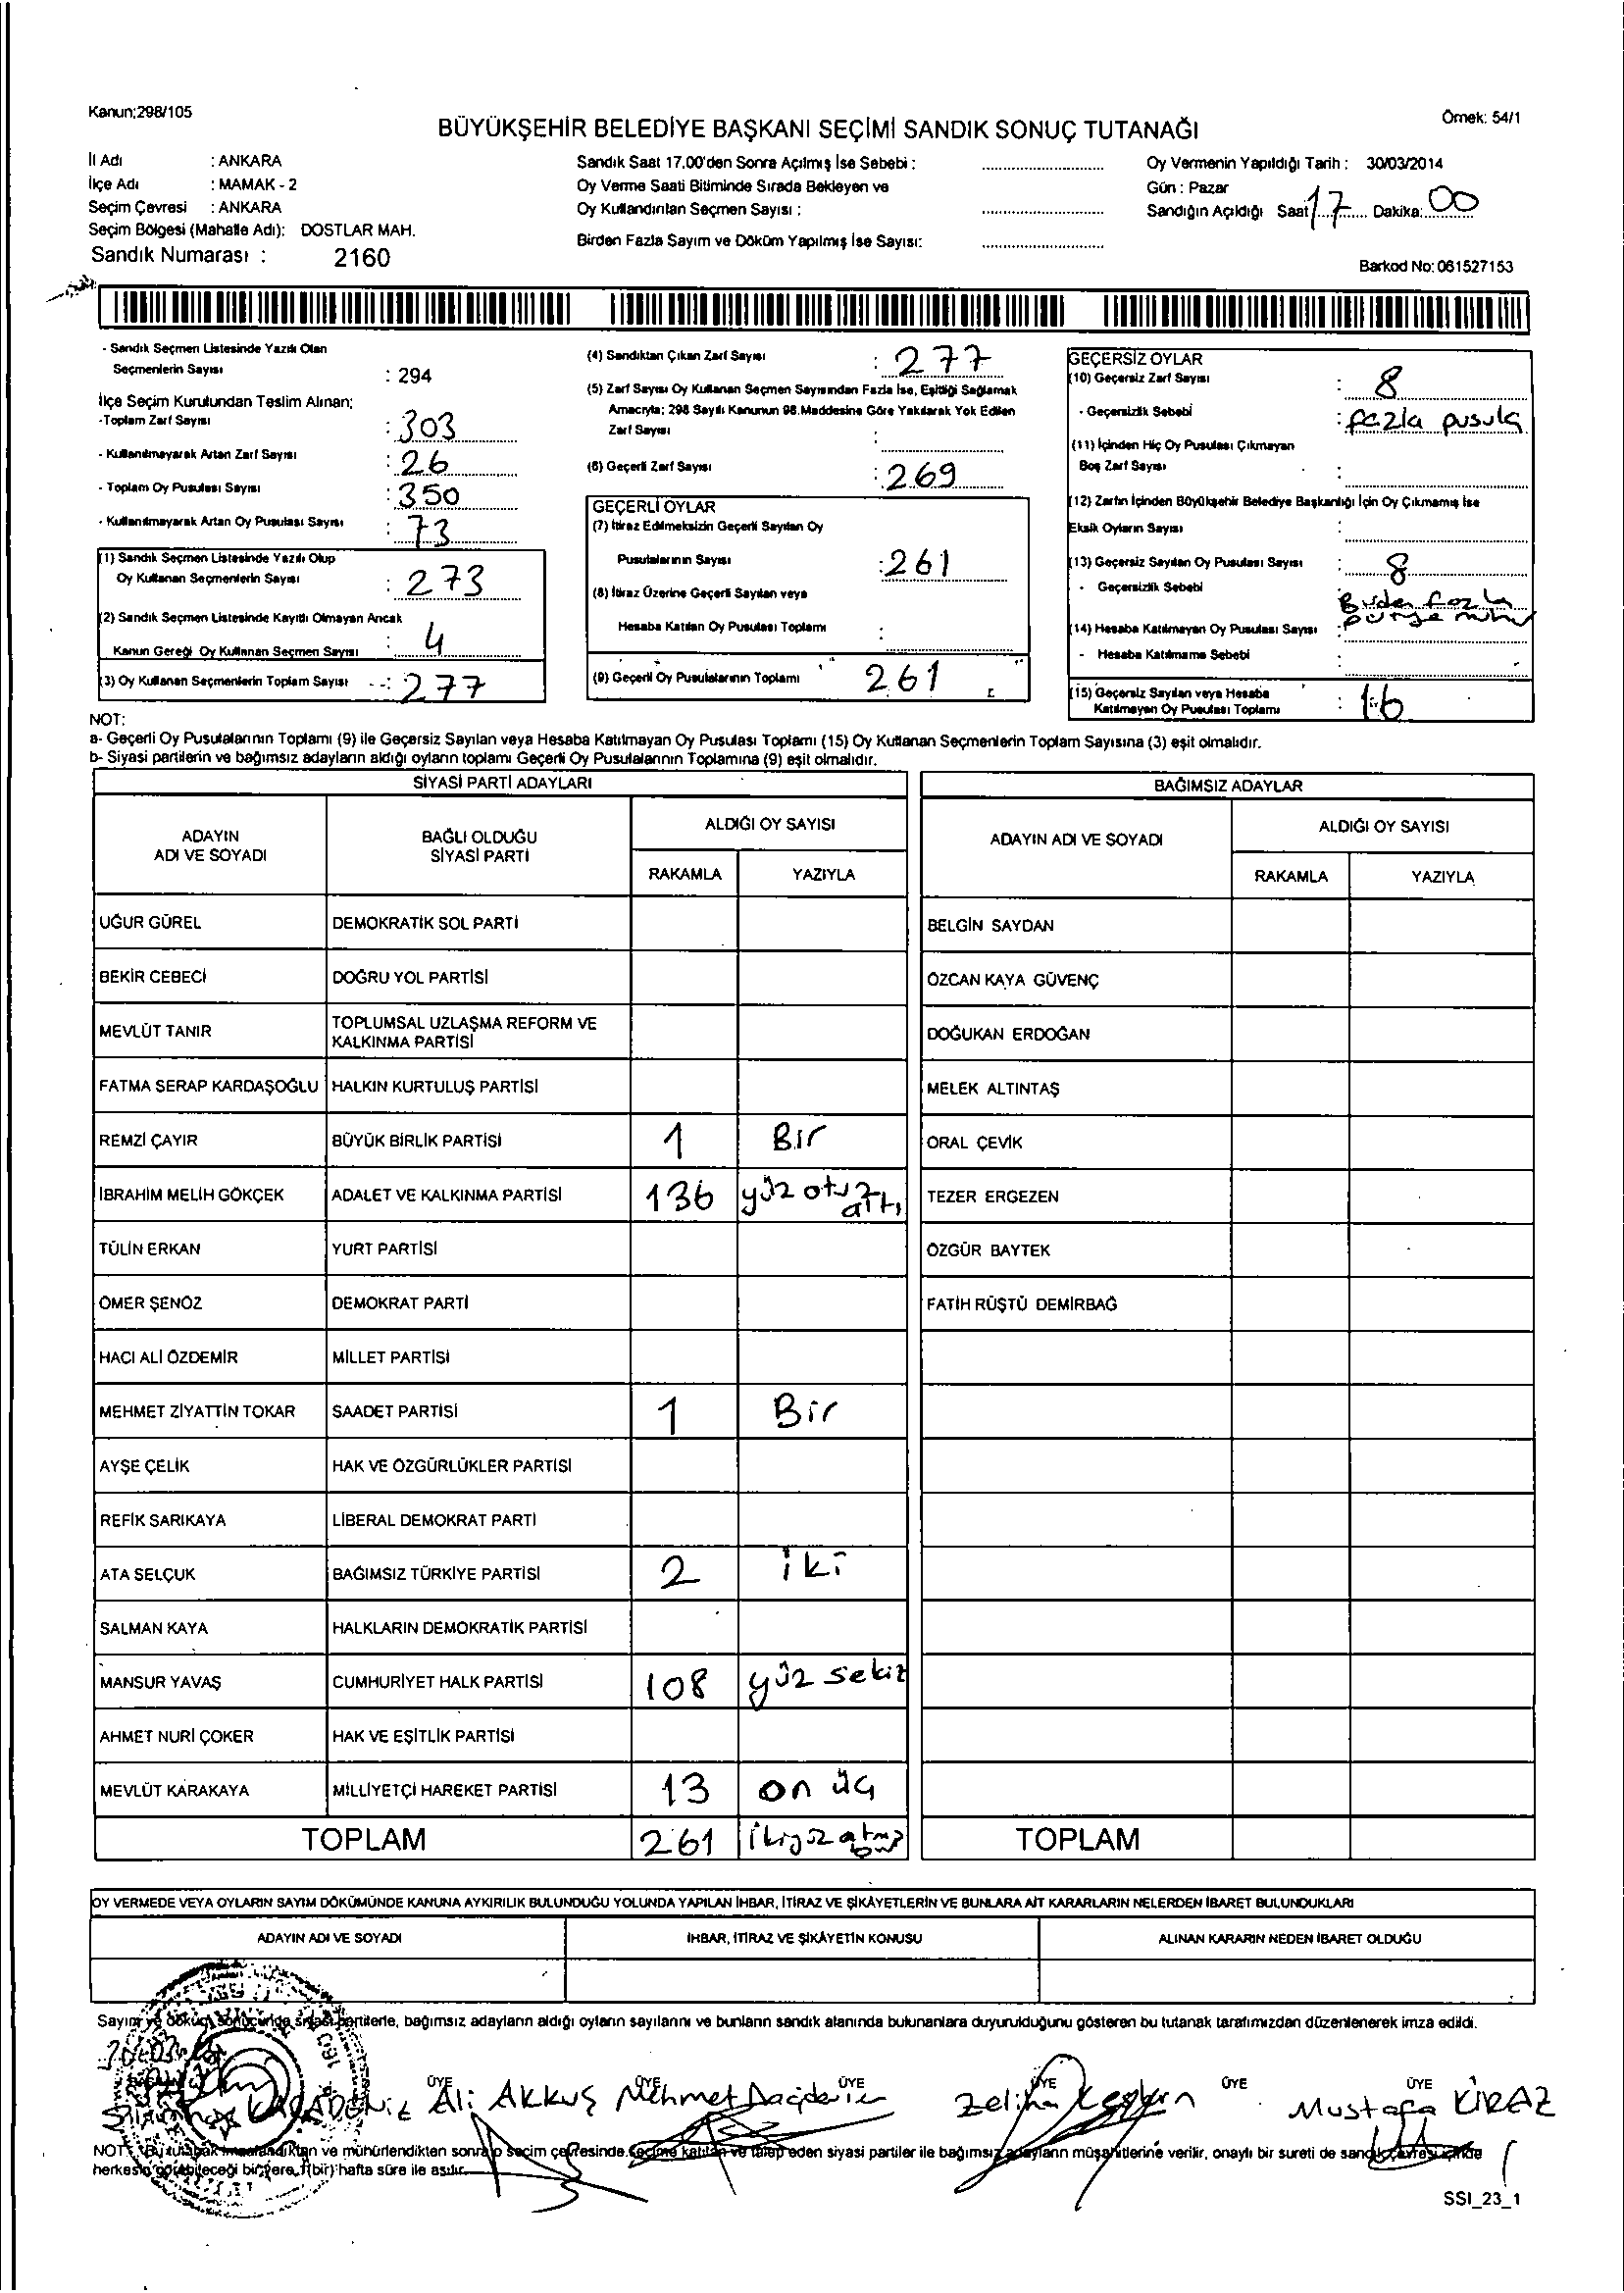 Kanun;298/105
Örnek: 54/1
BÜYÜKŞEHİR BELEDİYE BAŞKANI SEÇİMİ SANDIK SONUÇ TUTANAĞI
İl Adı : ANKARA
İlçe Adı : MAMAK - 2
Seçim Çevresi : ANKARA
Seçim Bölgesi (Mahalle Adı): DOSTLAR MAH.
Sandık Numarası : 2160
Sandık Saat 17.00'den Sonra Açılmış İse Sebebi :
Oy Verme Saati Bitiminde Sırada Bekleyen ve
Oy Kullandırılan Seçmen Sayısı :
Birden Fazla Sayım ve Döküm Yapılmış İse Sayısı:
Oy Vermenin Yapıldığı Tarih : 30/03/2014
Gün : Pazar
Sandığın Açıldığı Saat 17 Dakika: 00
Barkod No: 061527153
- Sandık Seçmen Listesinde Yazılı Olan
Seçmenlerin Sayısı : 294
İlçe Seçim Kurulundan Teslim Alınan;
-Toplam Zarf Sayısı : 303
- Kullanılmayarak Artan Zarf Sayısı : 26
- Toplam Oy Pusulası Sayısı : 350
- Kullanılmayarak Artan Oy Pusulası Sayısı : 73
(1) Sandık Seçmen Listesinde Yazılı Olup
Oy Kullanan Seçmenlerin Sayısı : 273
(2) Sandık Seçmen Listesinde Kayıtlı Olmayan Ancak
Kanun Gereği Oy Kullanan Seçmen Sayısı : 4
(3) Oy Kullanan Seçmenlerin Toplam Sayısı : 277
(4) Sandıktan Çıkan Zarf Sayısı : 277
(5) Zarf Sayısı Oy Kullanan Seçmen Sayısından Fazla İse, Eşitliği Sağlamak
Amacıyla; 298 Sayılı Kanunun 98.Maddesine Göre Yakılarak Yok Edilen
Zarf Sayısı :
(6) Geçerli Zarf Sayısı : 269
GEÇERLİ OYLAR
(7) İtiraz Edilmeksizin Geçerli Sayılan Oy
Pusulalarının Sayısı : 261
(8) İtiraz Üzerine Geçerli Sayılan veya
Hesaba Katılan Oy Pusulası Toplamı :
(9) Geçerli Oy Pusulalarının Toplamı 261
GEÇERSİZ OYLAR
(10) Geçersiz Zarf Sayısı : 8
- Geçersizlik Sebebi : fazla pusula
(11) İçinden Hiç Oy Pusulası Çıkmayan
Boş Zarf Sayısı :
(12) Zarfın İçinden Büyükşehir Belediye Başkanlığı İçin Oy Çıkmamış İse
Eksik Oyların Sayısı :
(13) Geçersiz Sayılan Oy Pusulası Sayısı : 8
- Geçersizlik Sebebi
(14) Hesaba Katılmayan Oy Pusulası Sayısı :
- Hesaba Katılmama Sebebi :
(15) Geçersiz Sayılan veya Hesaba
Katılmayan Oy Pusulası Toplamı : 16
NOT:
a- Geçerli Oy Pusulalarının Toplamı (9) ile Geçersiz Sayılan veya Hesaba Katılmayan Oy Pusulası Toplamı (15) Oy Kullanan Seçmenlerin Toplam Sayısına (3) eşit olmalıdır.
b- Siyasi partilerin ve bağımsız adayların aldığı oyların toplamı Geçerli Oy Pusulalarının Toplamına (9) eşit olmalıdır.
SİYASİ PARTİ ADAYLARI
ADAYIN ADI VE SOYADI BAĞLI OLDUĞU SİYASİ PARTİ ALDIĞI OY SAYISI
RAKAMLA YAZIYLA
UĞUR GÜREL DEMOKRATİK SOL PARTİ
BEKİR CEBECİ DOĞRU YOL PARTİSİ
MEVLÜT TANIR TOPLUMSAL UZLAŞMA REFORM VE KALKINMA PARTİSİ
FATMA SERAP KARDAŞOĞLU HALKIN KURTULUŞ PARTİSİ
REMZİ ÇAYIR BÜYÜK BİRLİK PARTİSİ 1 Bir
İBRAHİM MELİH GÖKÇEK ADALET VE KALKINMA PARTİSİ 136 yüz otuz altı
TÜLİN ERKAN YURT PARTİSİ
ÖMER ŞENÖZ DEMOKRAT PARTİ
HACI ALİ ÖZDEMİR MİLLET PARTİSİ
MEHMET ZİYATTİN TOKAR SAADET PARTİSİ 1 Bir
AYŞE ÇELİK HAK VE ÖZGÜRLÜKLER PARTİSİ
REFİK SARIKAYA LİBERAL DEMOKRAT PARTİ
ATA SELÇUK BAĞIMSIZ TÜRKİYE PARTİSİ 2 iki
SALMAN KAYA HALKLARIN DEMOKRATİK PARTİSİ
MANSUR YAVAŞ CUMHURİYET HALK PARTİSİ 108 yüz sekiz
AHMET NURİ ÇOKER HAK VE EŞİTLİK PARTİSİ
MEVLÜT KARAKAYA MİLLİYETÇİ HAREKET PARTİSİ 13 on üç
TOPLAM 261
BAĞIMSIZ ADAYLAR
ADAYIN ADI VE SOYADI ALDIĞI OY SAYISI
RAKAMLA YAZIYLA
BELGİN SAYDAN
ÖZCAN KAYA GÜVENÇ
DOĞUKAN ERDOĞAN
MELEK ALTINTAŞ
ORAL ÇEVİK
TEZER ERGEZEN
ÖZGÜR BAYTEK
FATİH RÜŞTÜ DEMİRBAĞ
TOPLAM
OY VERMEDE VEYA OYLARIN SAYIM DÖKÜMÜNDE KANUNA AYKIRILIK BULUNDUĞU YOLUNDA YAPILAN İHBAR, İTİRAZ VE ŞİKÂYETLERİN VE BUNLARA AİT KARARLARIN NELERDEN İBARET BULUNDUKLARI
ADAYIN ADI VE SOYADI İHBAR, İTİRAZ VE ŞİKÂYETİN KONUSU ALINAN KARARIN NEDEN İBARET OLDUĞU
Sayım ve döküm sonucunda siyasi partilerle, bağımsız adayların aldığı oyların sayılarını ve bunların sandık alanında bulunanlara duyurulduğunu gösteren bu tutanak tarafımızdan düzenlenerek imza edildi.
ÜYE ÜYE ÜYE ÜYE ÜYE ÜYE
KARADENİZ Ali AKKUŞ Mehmet Zeliha Keskin Mustafa KİRAZ
NOT: Bu tutanak imzalandıktan ve mühürlendikten sonra o seçim çevresinde seçime katılan ve talep eden siyasi partiler ile bağımsız adayların müşahitlerine verilir, onaylı bir sureti de sandık çevresi içinde
herkesin görebileceği bir yere 1(bir) hafta süre ile asılır.
SSI_23_1